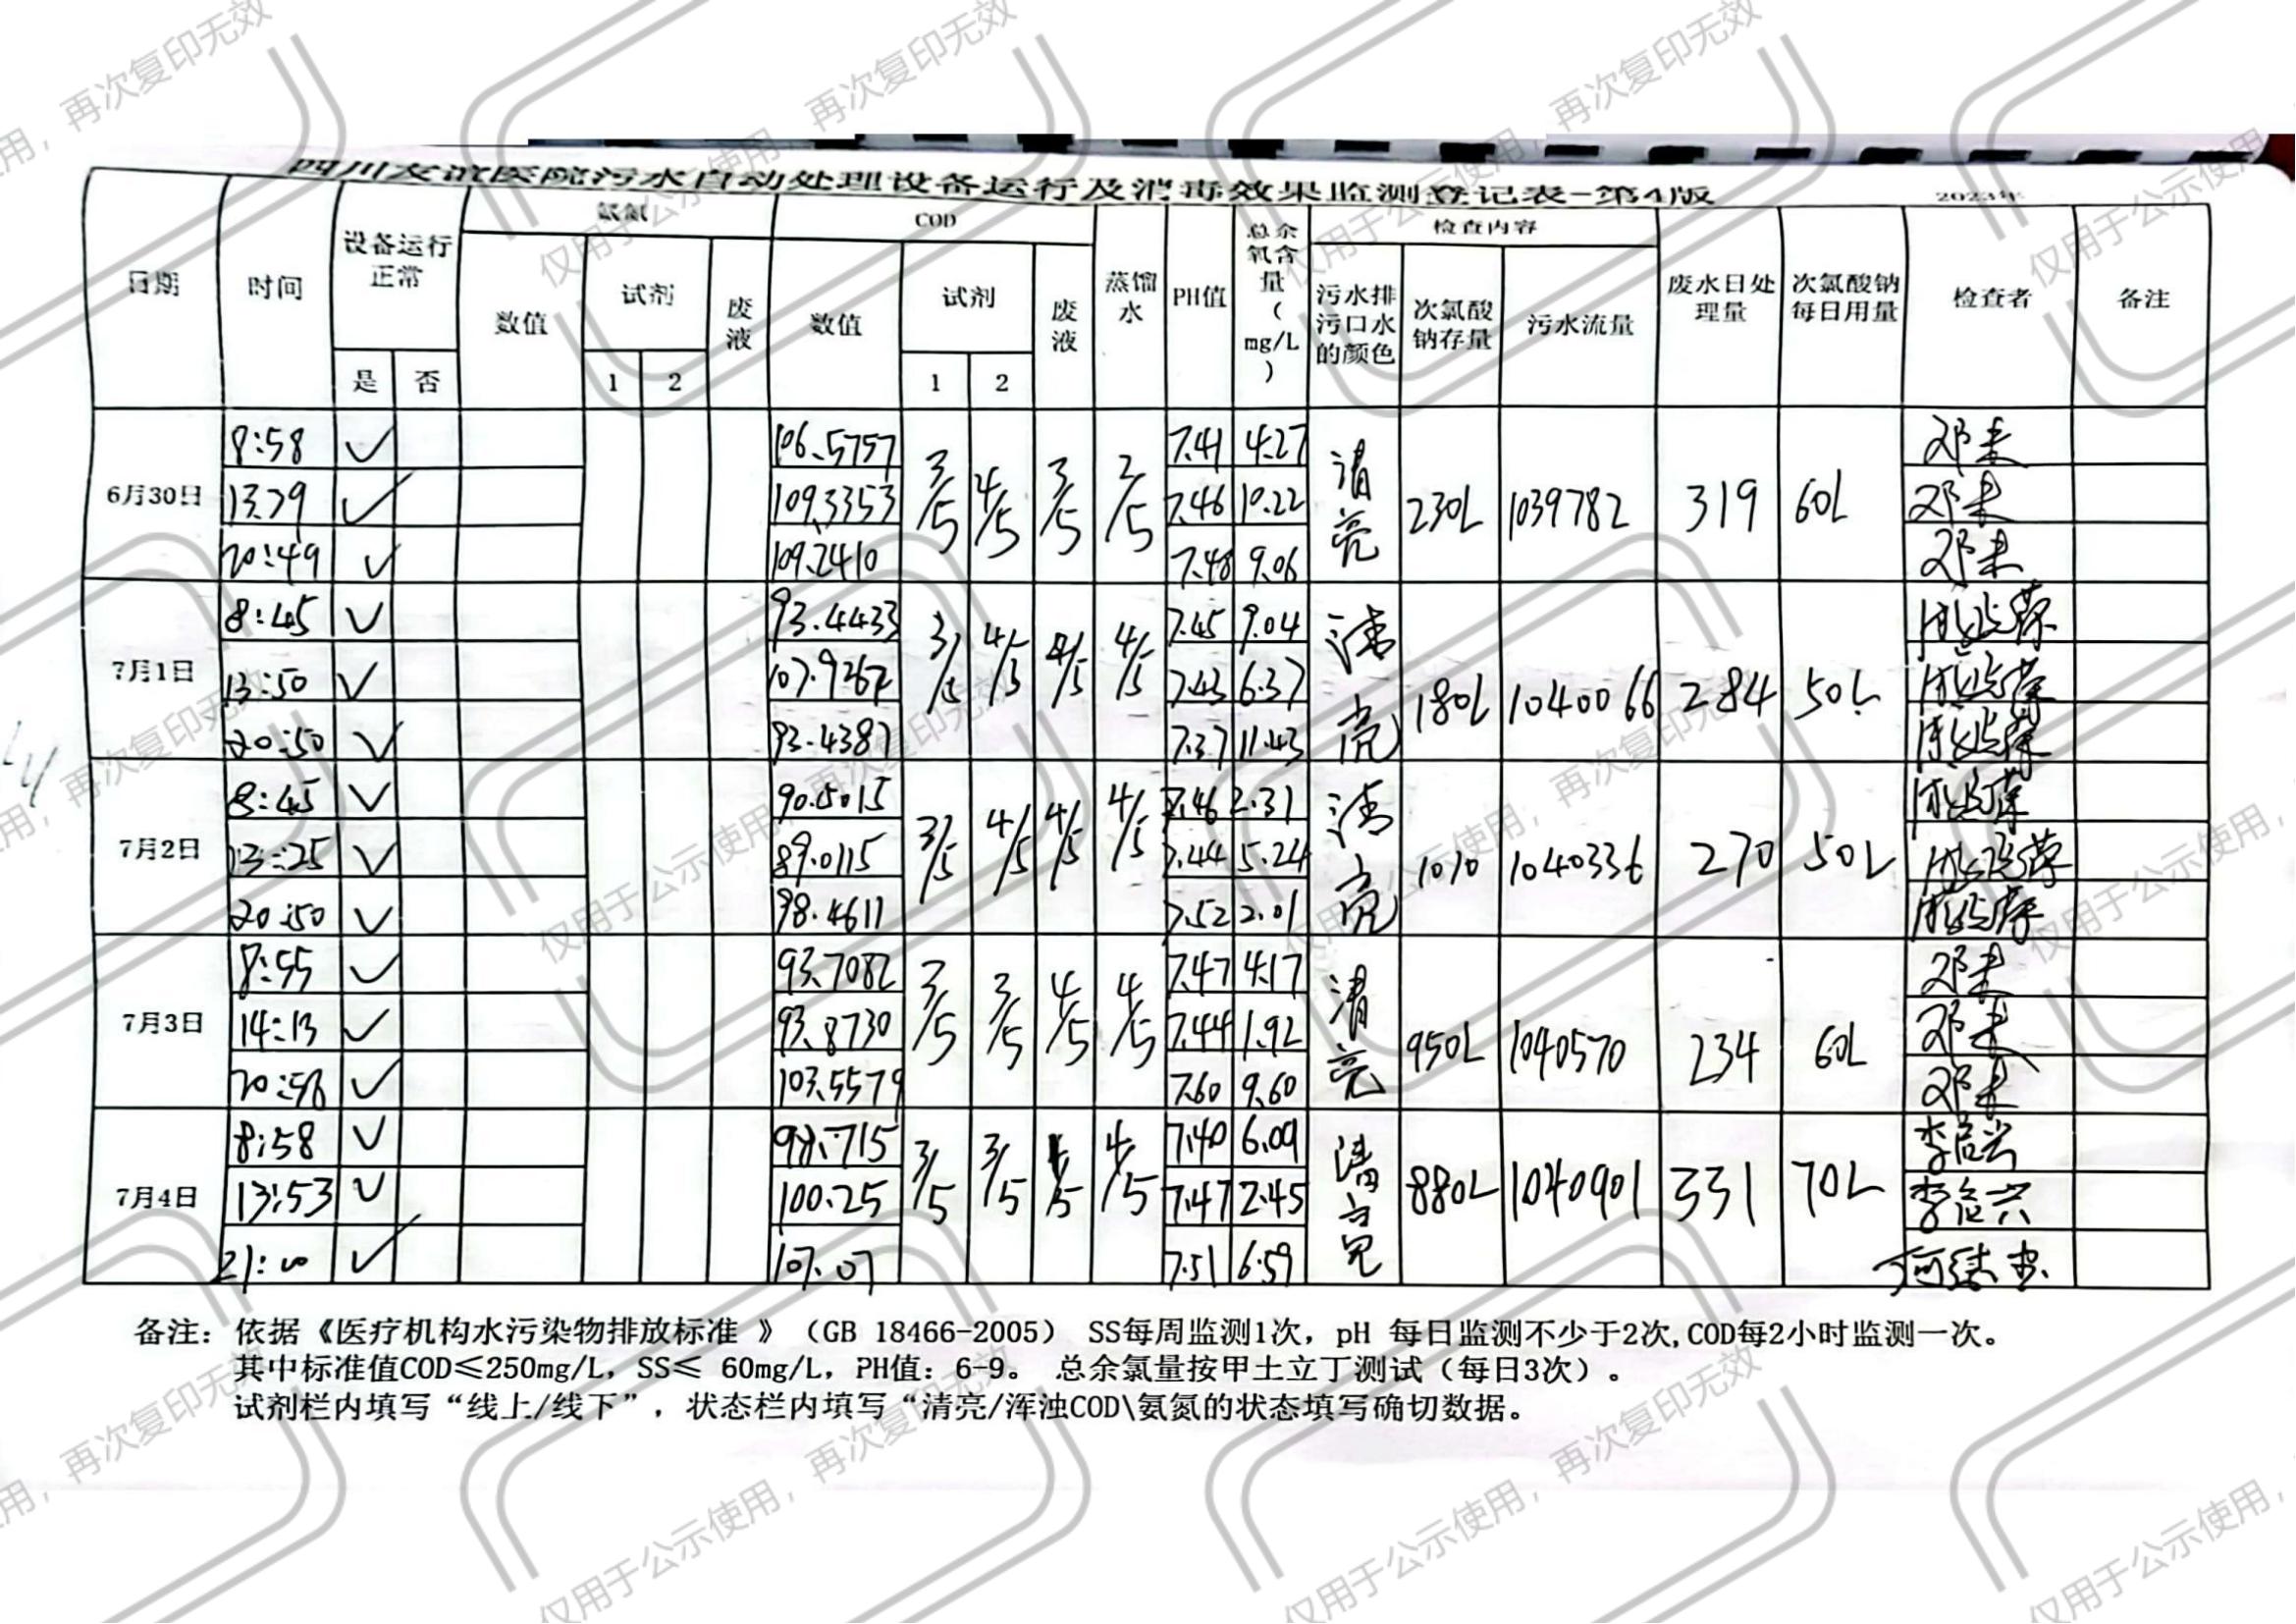 四川友谊医院污水自动处理设备运行及消毒效果监测登记表-第4版 2023年
日期 时间 设备运行正常 氨氮 COD 蒸馏水 PH值 总余氧含量(mg/L) 检查内容 废水日处理量 次氯酸钠每日用量 检查者 备注
是 否 数值 试剂 废液 数值 试剂 废液 污水排污口水的颜色 次氯酸钠存量 污水流量
1 2 1 2
6月30日 8:58 ✓ 106.5757 3/5 4/5 3/5 2/5 7.41 4.27 清亮 230L 1039782 319 60L 邓未
13:29 ✓ 109.3353 7.46 10.22 邓未
20:49 ✓ 109.2410 7.48 9.06 邓未
7月1日 8:45 ✓ 93.4433 3/5 4/5 4/5 4/5 7.45 9.04 清亮 180L 1040066 284 50L
13:50 ✓ 107.9267 7.43 6.37
20:50 ✓ 93.4387 7.37 11.43
7月2日 8:45 ✓ 90.5015 3/5 4/5 4/5 4/5 7.46 2.31 清亮 1010 1040336 270 50L
13:25 ✓ 89.0115 7.44 5.24
20:50 ✓ 98.4611 7.52 2.01
7月3日 8:55 ✓ 93.7082 3/5 3/5 4/5 4/5 7.47 4.17 清亮 950L 1040570 234 60L 邓未
14:13 ✓ 93.8730 7.44 1.92 邓未
20:56 ✓ 103.5579 7.60 9.60 邓未
7月4日 8:58 ✓ 98.715 3/5 3/5 4/5 4/5 7.40 6.09 清亮 880L 1040901 331 70L
13:53 ✓ 100.25 7.47 2.45
21:00 ✓ 107.07 7.51 6.59
备注：依据《医疗机构水污染物排放标准 》（GB 18466-2005） SS每周监测1次，pH 每日监测不少于2次,COD每2小时监测一次。
其中标准值COD≤250mg/L，SS≤ 60mg/L，PH值：6-9。 总余氯量按甲土立丁测试（每日3次）。
试剂栏内填写“线上/线下”，状态栏内填写“清亮/浑浊COD\氨氮的状态填写确切数据。
仅用于公示使用，再次复印无效